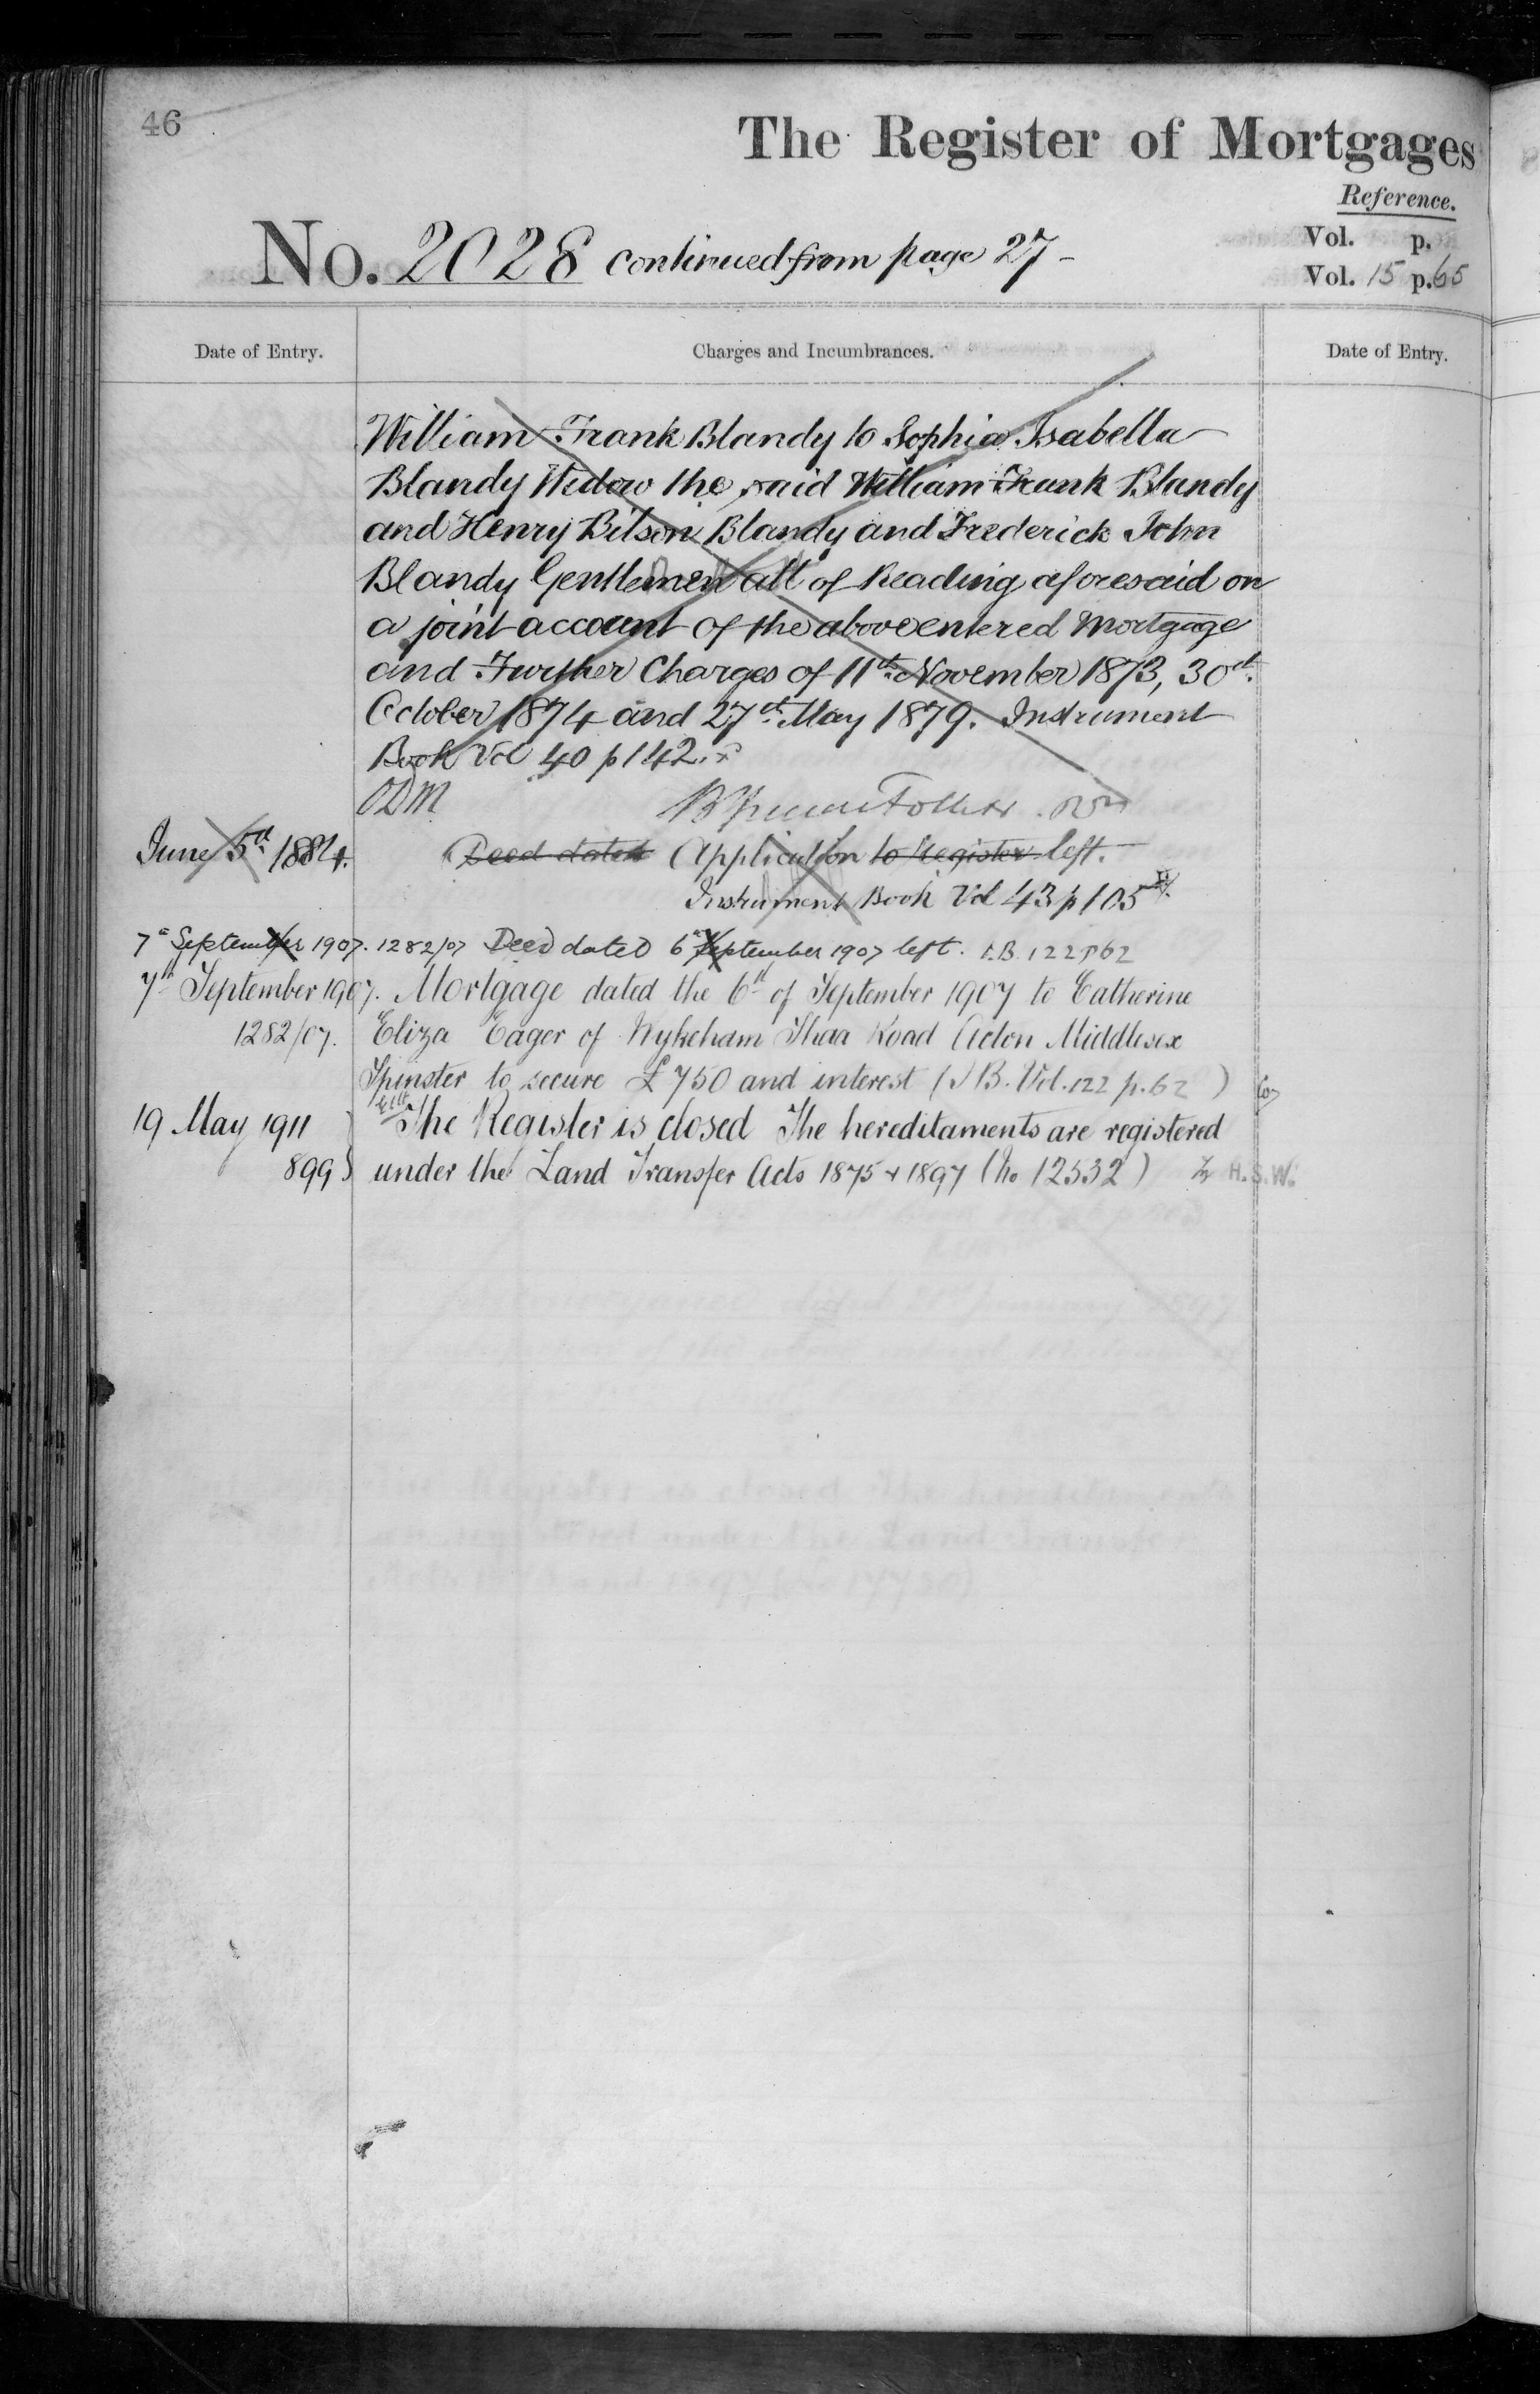 46
The Register of Mortgages
Reference.
Vol. p.
No. 2028 continued from page 27 -
Vol. 15 p. 65
Date of Entry. Charges and Incumbrances. Date of Entry.
William Frank Blandy to Sophia Isabella
Blandy Widow the said William Frank Blandy
and Henry Bilson Blandy and Frederick John
Blandy Gentlemen all of Reading aforesaid on
a joint account of the above entered Mortgage
and Further Charges of 11th November 1873, 30th
October 1874 and 27th May 1879. Instrument
Book Vol 40 p 142.
ODM
June 5th 1884. Deed dated Application to Register left.
Instrument Book Vol 43 p 105
7th September 1907. 1282/07 Deed dated 6th September 1907 left. I.B. 122 p 62
7th September 1907. Mortgage dated the 6th of September 1907 to Catherine
1282/07. Eliza Eager of Wykeham Shaa Road Acton Middlesex
Spinster to secure £750 and interest (I B. Vol. 122 p. 62)
19 May 1911 The Register is closed The hereditaments are registered
899 under the Land Transfer Acts 1875 & 1897 (No 12532) H.S.W.